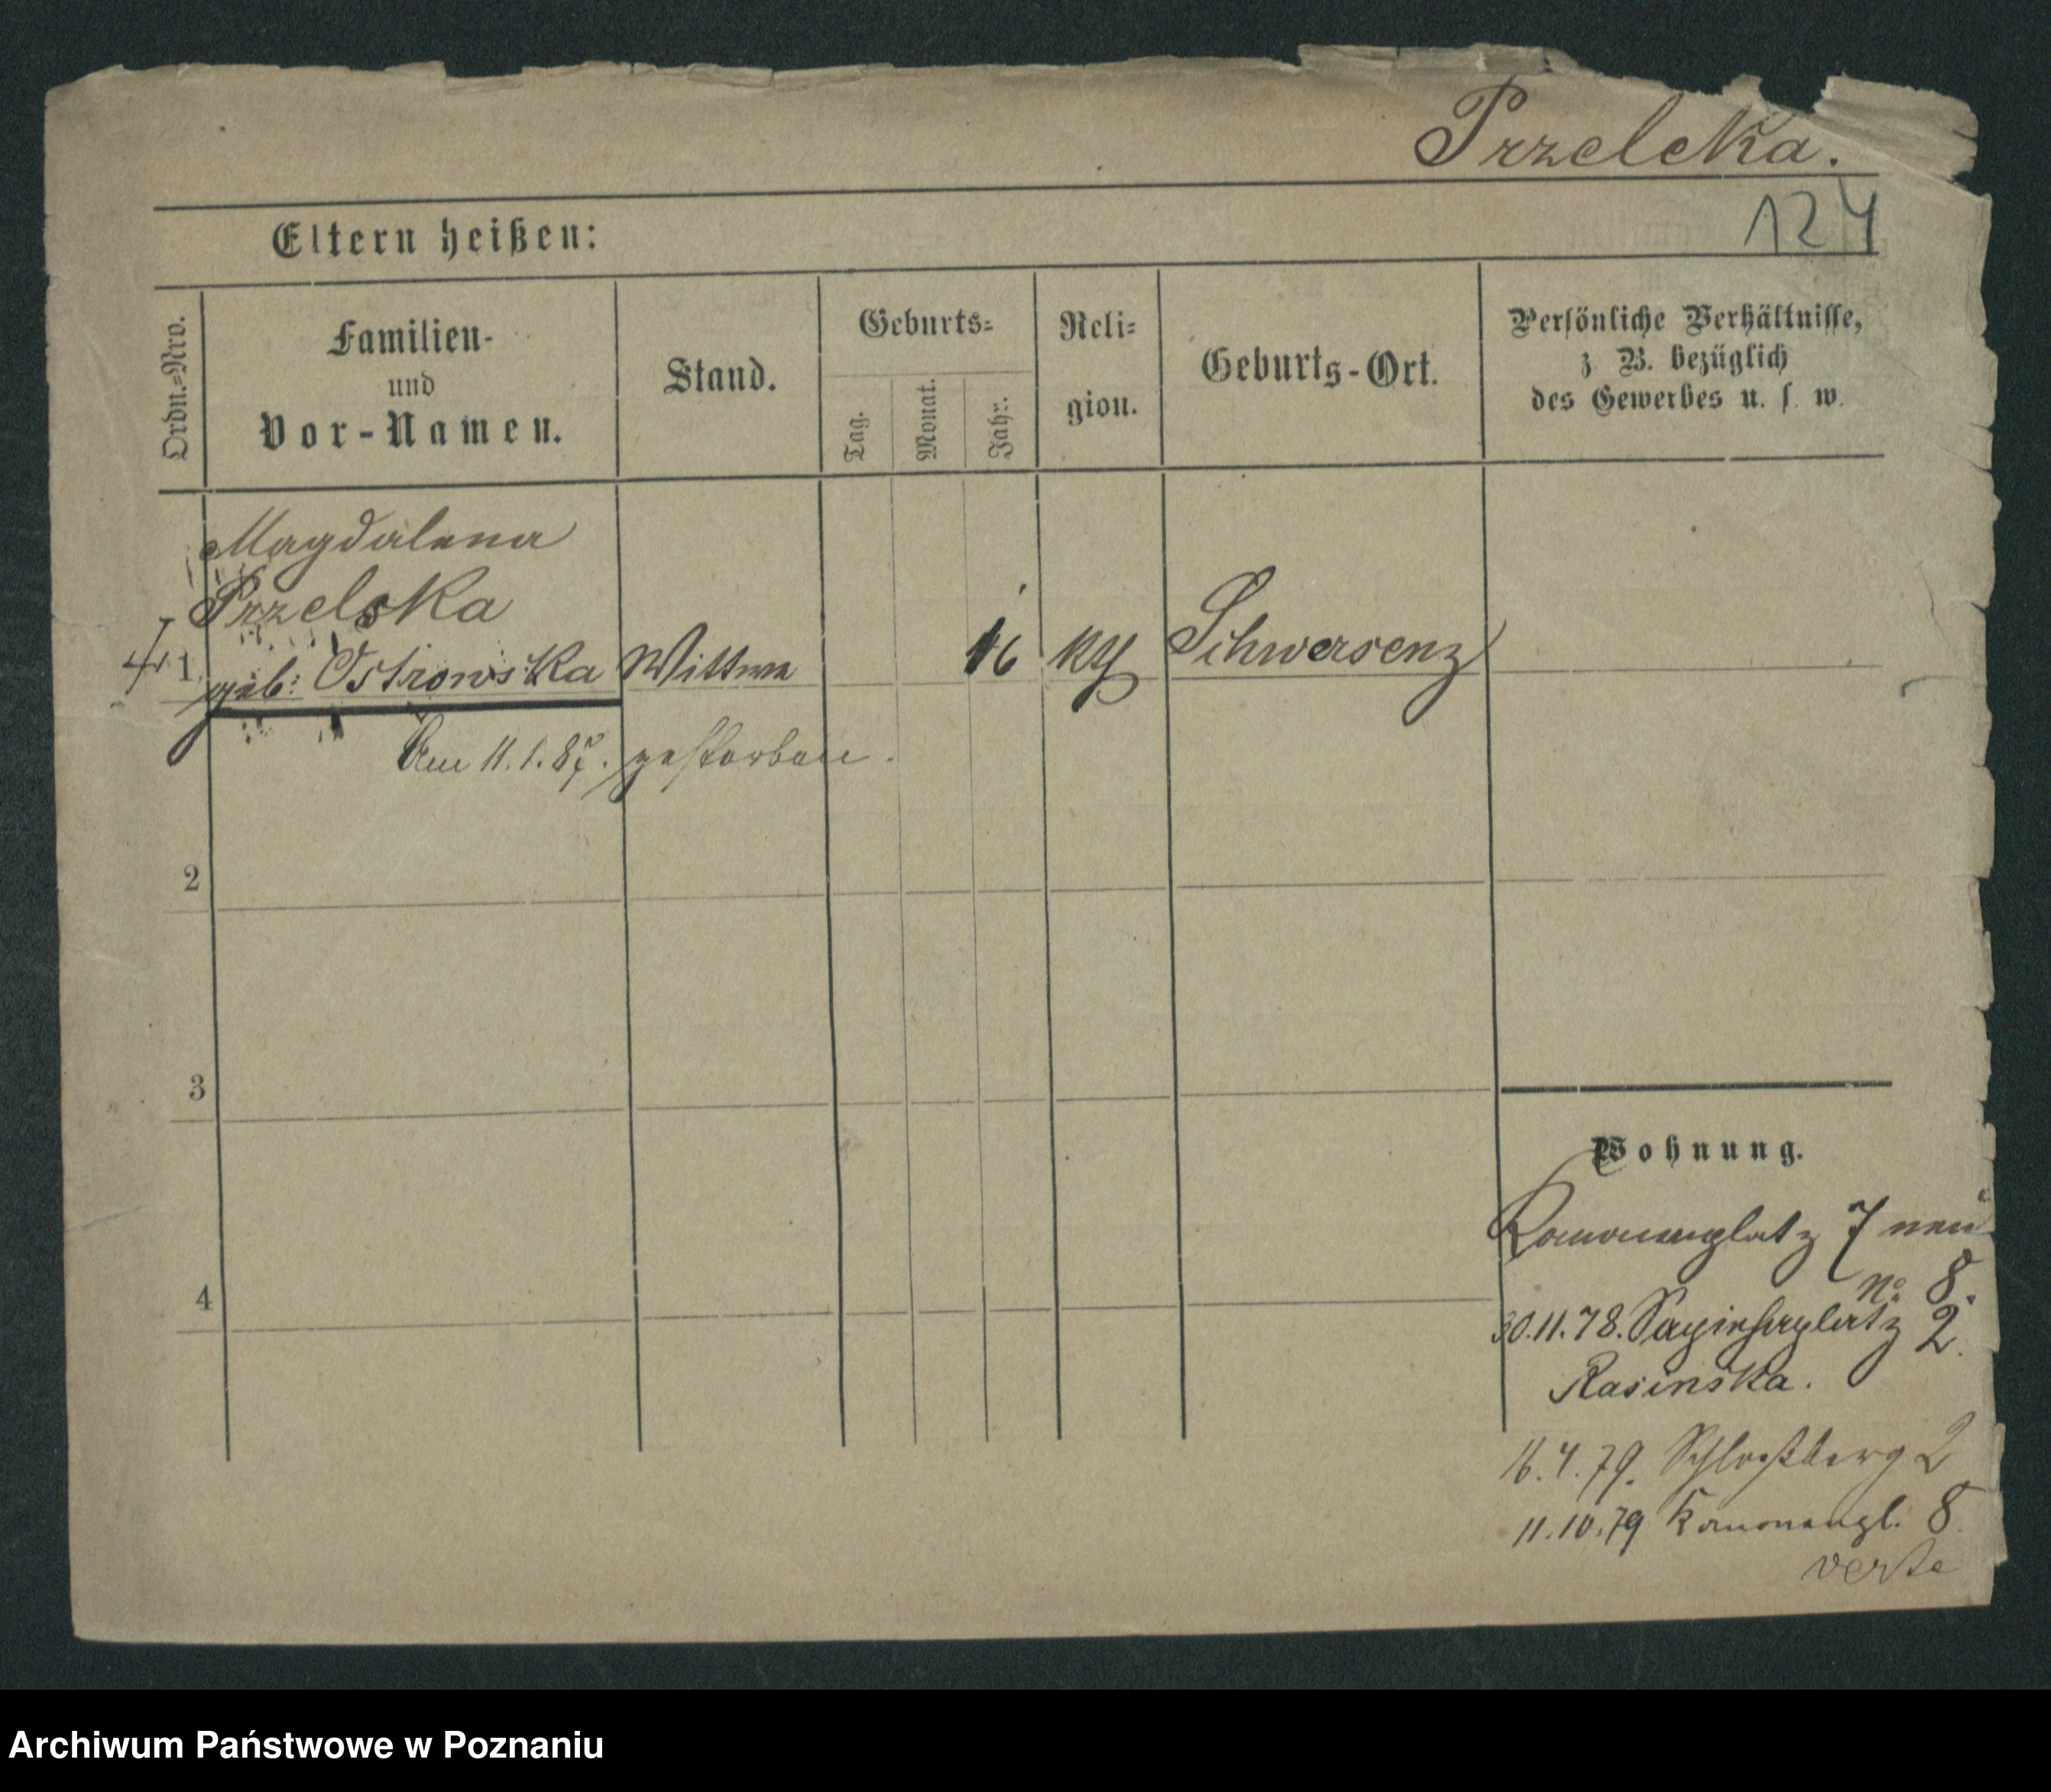 Przelcka.
124
Eltern heißen:
Ordn.=Nro.
Familien-
und
Vor-Namen.
Stand.
Geburts=
Tag.
Monat.
Jahr.
Reli=
gion.
Geburts-Ort.
Persönliche Verhältnisse,
z. B. bezüglich
des Gewerbes u. s. w.
Magdalena
Przelska
1 geb: Ostrowska Wittwe 16 Schwersenz
Am 11.1.87. gestorben.
2
3
4
Wohnung.
7 neu
No 8.
30.11.78. Sapiehaplatz 2.
Rasinska.
16.4.79. Schloßberg 2
11.10.79 Kanonenpl. 8
verte
Archiwum Państwowe w Poznaniu